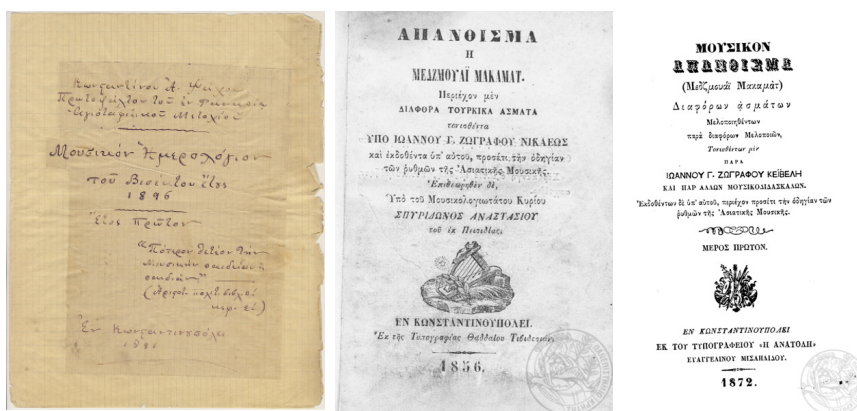 Κωνσταντίνου Α. Ψάχου
Πρωτοψάλτου τοῦ ἐν Φαναρίῳ
Ἁγιοταφιτικοῦ Μετοχίου
Μουσικόν Ἡμερολόγιον
τοῦ ἔτους
1896
Ἔτος Πρῶτον
"Πότερον θετέον τὴν
Μουσικήν
Ἐν Κωνσταντινουπόλει
1896
ΑΠΑΝΘΙΣΜΑ
Η
ΜΕΔΖΜΟΥΑΪ ΜΑΚΑΜΑΤ.
Περιέχον μὲν
ΔΙΑΦΟΡΑ ΤΟΥΡΚΙΚΑ ΑΣΜΑΤΑ
τονισθέντα
ΥΠΟ ΙΩΑΝΝΟΥ Γ. ΖΩΓΡΑΦΟΥ ΝΙΚΑΕΩΣ
καὶ ἐκδοθέντα ὑπ' αὐτοῦ, προσέτι τὴν ὁδηγίαν
τῶν ῥυθμῶν τῆς Ἀσιατικῆς Μουσικῆς.
Ἐπιθεωρηθὲν δὲ,
Ὑπὸ τοῦ Μουσικολογιωτάτου Κυρίου
ΣΠΥΡΙΔΩΝΟΣ ΑΝΑΣΤΑΣΙΟΥ
τοῦ ἐκ Πεισιδίας.
ΕΝ ΚΩΝΣΤΑΝΤΙΝΟΥΠΟΛΕΙ.
Ἐκ τῆς Τυπογραφίας Θαδδαίου Τιβιδεσιάν.
1856.
ΜΟΥΣΙΚΟΝ
ΑΠΑΝΘΙΣΜΑ
(Μεδζμουαΐ Μακαμάτ)
Διαφόρων ᾀσμάτων
Μελοποιηθέντων
παρὰ διαφόρων Μελοποιῶν,
Τονισθέντων μὲν
ΠΑΡΑ
ΙΩΑΝΝΟΥ Γ. ΖΩΓΡΑΦΟΥ ΚΕΪΒΕΛΗ
ΚΑΙ ΠΑΡ ΑΛΛΩΝ ΜΟΥΣΙΚΟΔΙΔΑΣΚΑΛΩΝ.
Ἐκδοθέντων δὲ ὑπ' αὐτοῦ, περιέχον προσέτι τὴν ὁδηγίαν τῶν
ῥυθμῶν τῆς Ἀσιατικῆς Μουσικῆς.
ΜΕΡΟΣ ΠΡΩΤΟΝ.
ΕΝ ΚΩΝΣΤΑΝΤΙΝΟΥΠΟΛΕΙ
ΕΚ ΤΟΥ ΤΥΠΟΓΡΑΦΕΙΟΥ «Η ΑΝΑΤΟΛΗ»
ΕΥΑΓΓΕΛΙΝΟΥ ΜΙΣΑΗΛΙΔΟΥ.
1872.